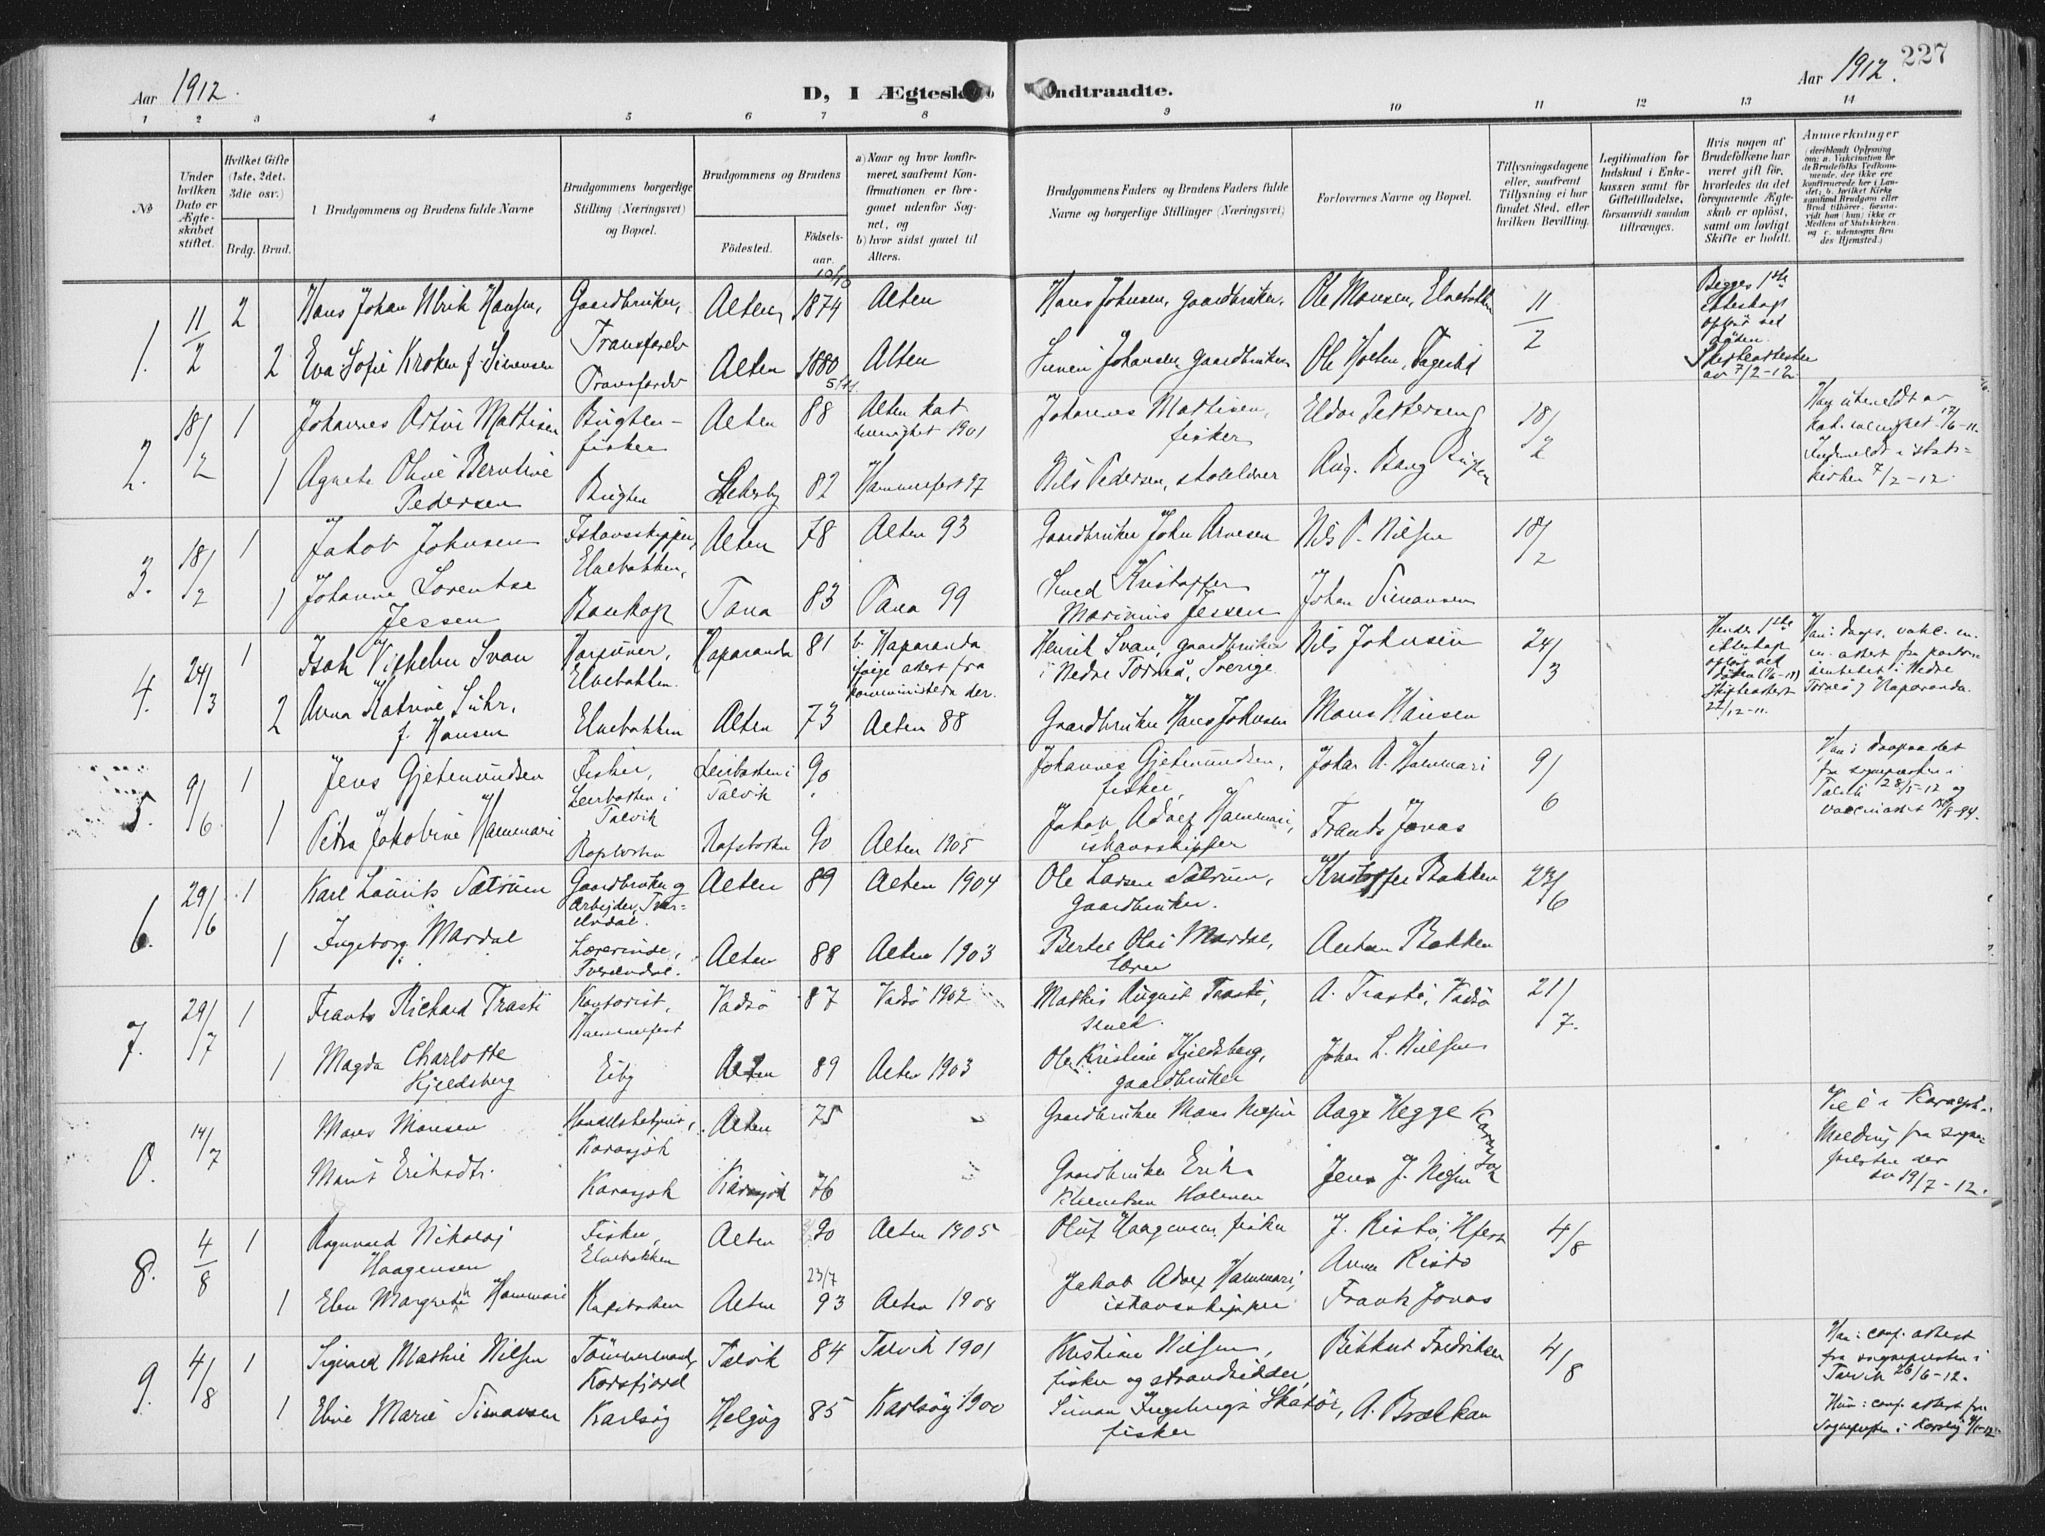 Aar 1912.
D, I Ægteskab Indtraadte.
Aar 1912.
227
1 2 3 4 5 6 7 8 9 10 11 12 13 14
No
Under hvilken Dato er Ægteskabet stiftet.
Hvilket Gifte (1ste, 2det, 3die osv.)
Brdg. Brud.
1 Brudgommens og Brudens fulde Navne
Brudgommens borgerlige Stilling (Næringsvei) og Bopæl.
Brudgommens og Brudens
Födested.
Födselsaar.
a) Naar og hvor konfirmeret, saafremt Konfirmationen er foregaaet udenfor Sognet, og
b) hvor sidst gaaet til Alters.
Brudgommens Faders og Brudens Faders fulde Navne og borgerlige Stillinger (Næringsvei)
Forlovernes Navne og Bopæl.
Tillysningsdagene eller, saafremt Tillysning ei har fundet Sted, efter hvilken Bevilling.
Legitimation for Indskud i Enkekassen samt for Giftetilladelse, forsaavidt saadan tiltrænges.
Hvis nogen af Brudefolkene har været gift för, hvorledes da det foregaaende Ægteskab er oplöst, samt om lovligt Skifte er holdt.
Anmærkninger
(deriblandt Oplysning om: a. Vakcination for de Brudefolks Vedkommende, der ikke ere konfirmerede her i Landet; b. hvilket Kirkesamfund Brudgom eller Brud tilhörer, forsaavidt han (hun) ikke er Medlem af Statskirken, og c. udensogns Brudes Hjemsted.)
1. 11/2 2 Hans Johan Ulrik Hansen, Gaardbruker, Transfarelv Alten 10/10 1874 Alten Hans Johnsen, gaardbruker. Ole Monsen, Elvebakken 11/2 Begges 1ste ekteskap opløst ved døden.
2 Eva Sofie Kroken f. Simensen Transfarelv Alten 1880 5/11 Alten Simen Johansen, gaardbruker Ole Holten, Skifteattester av 7/2-12.
2. 18/2 1 Johannes Mattisen Bugten fisker Alten 88 Alten kat menighet 1901 Johannes Mattisen, fisker Pettersen 18/2 Han utmeldt av kat. menighet 17/6-11. Indmeldt i statskirken 7/2-12.
1 Agnete Oline Berntine Pedersen Bugten 82 Hammerfest 97 Nils Pedersen, Aug. Bang Bugten
3. 18/2 1 Jakob Johnsen Ishavsskipper, Elvebakken, Alten 78 Alten 93 Gaardbruker John Arnesen Nils P. Nilsen 18/2
1 Johanne Lorentse Jessen Tana 83 Tana 99 Smed Kristoffer Marinius Jessen Johan Simonsen
4. 24/3 1 Isak Vilhelm Svan Harpuner, Elvebakken. Haparanda 81 b. Haparanda ifølge attest fra komministern der. Henrik Svan, gaardbruker i Nedre Torneå, Sverige. Nils Johnsen 24/3 Hendes 1ste ekteskap opløst ved døden Skifteattest 22/12-11. Haparanda.
2 Anna Katrine Suhr, f. Hansen Elvebakken Alten 73 Alten 88 Gaardbruker Hans Johnsen Mons Hansen
5. 9/6 1 Jens Gjetmundsen Fisker, Leirbotten i Talvik Leirbotten i Talvik 90 Johannes Gjetmundsen, fisker, Johan A. Hammari 9/6 Han: daapsattest fra sognepresten i Talvik 28/5-12 og
1 Petra Jakobine Hammari Rafsbotten Rafsbotten 90 Alten 1905 Jakob Adolf Hammari, ishavsskipper Frants Jonas
6. 29/6 1 Karl Laurits Sætrum Gaardbruker og Arbejder, Tverelvdal. Alten 89 Alten 1904 Ole Larsen Sætrum, gaardbruker. Kristoffer Bakken 23/6
1 Ingeborg Mardal Lærerinde, Tverelvdal. Alten 88 Alten 1903 Bertel Olai Mardal, lærer Anton Bakken
7. 29/7 1 Frants Richard Trasti Kontorist, Hammerfest Vadsø 87 Vadsø 1902 Mathis August Trasti, smed. A. Trasti, Vadsø 21/7.
1 Magda Charlotte Kjeldsberg Eiby Alten 89 Alten 1903 Ole Kristian Kjeldsberg, gaardbruker Johan L. Nielsen
0. 14/7 Mons Monsen Karasjok Alten 75 Gaardbruker Mons Nilsen Aage Hegge Karasjok Viet i Karasjok. Melding fra sognepresten der av 19/7-12.
Marit Eriksdtr. Karasjok Karasjok 76 Gaardbruker Erik Klemetsen Jens J. Nilsen
8. 4/8 1 Ragnvald Nikolaj Haagensen Fisker, Elvebakken Alten 90 Alten 1905 Oluf Haagensen, fisker J. Risto, Hfest 4/8
Anna Risto
1 Elen Margrethe Hammari Rafsbotten Alten 23/7 93 Alten 1908 Jakob Adolf Hammari, ishavsskipper Frank Jonas
9. 4/8 1 Sigvald Mathis Nilsen Tømmermand, Korsfjord Talvik 84 Talvik 1901 Kristian Nilsen, fisker og strandsidder, Fredriksen 4/8 Han: conf. attest fra sognepresten i Talvik 26/6-12.
1 Eline Marie Simonsen Karlsøy Helgøy 85 Karlsøy 1900 Simon fisker A. Brækkan Hun: conf. attest fra Sognepresten i Karlsøy